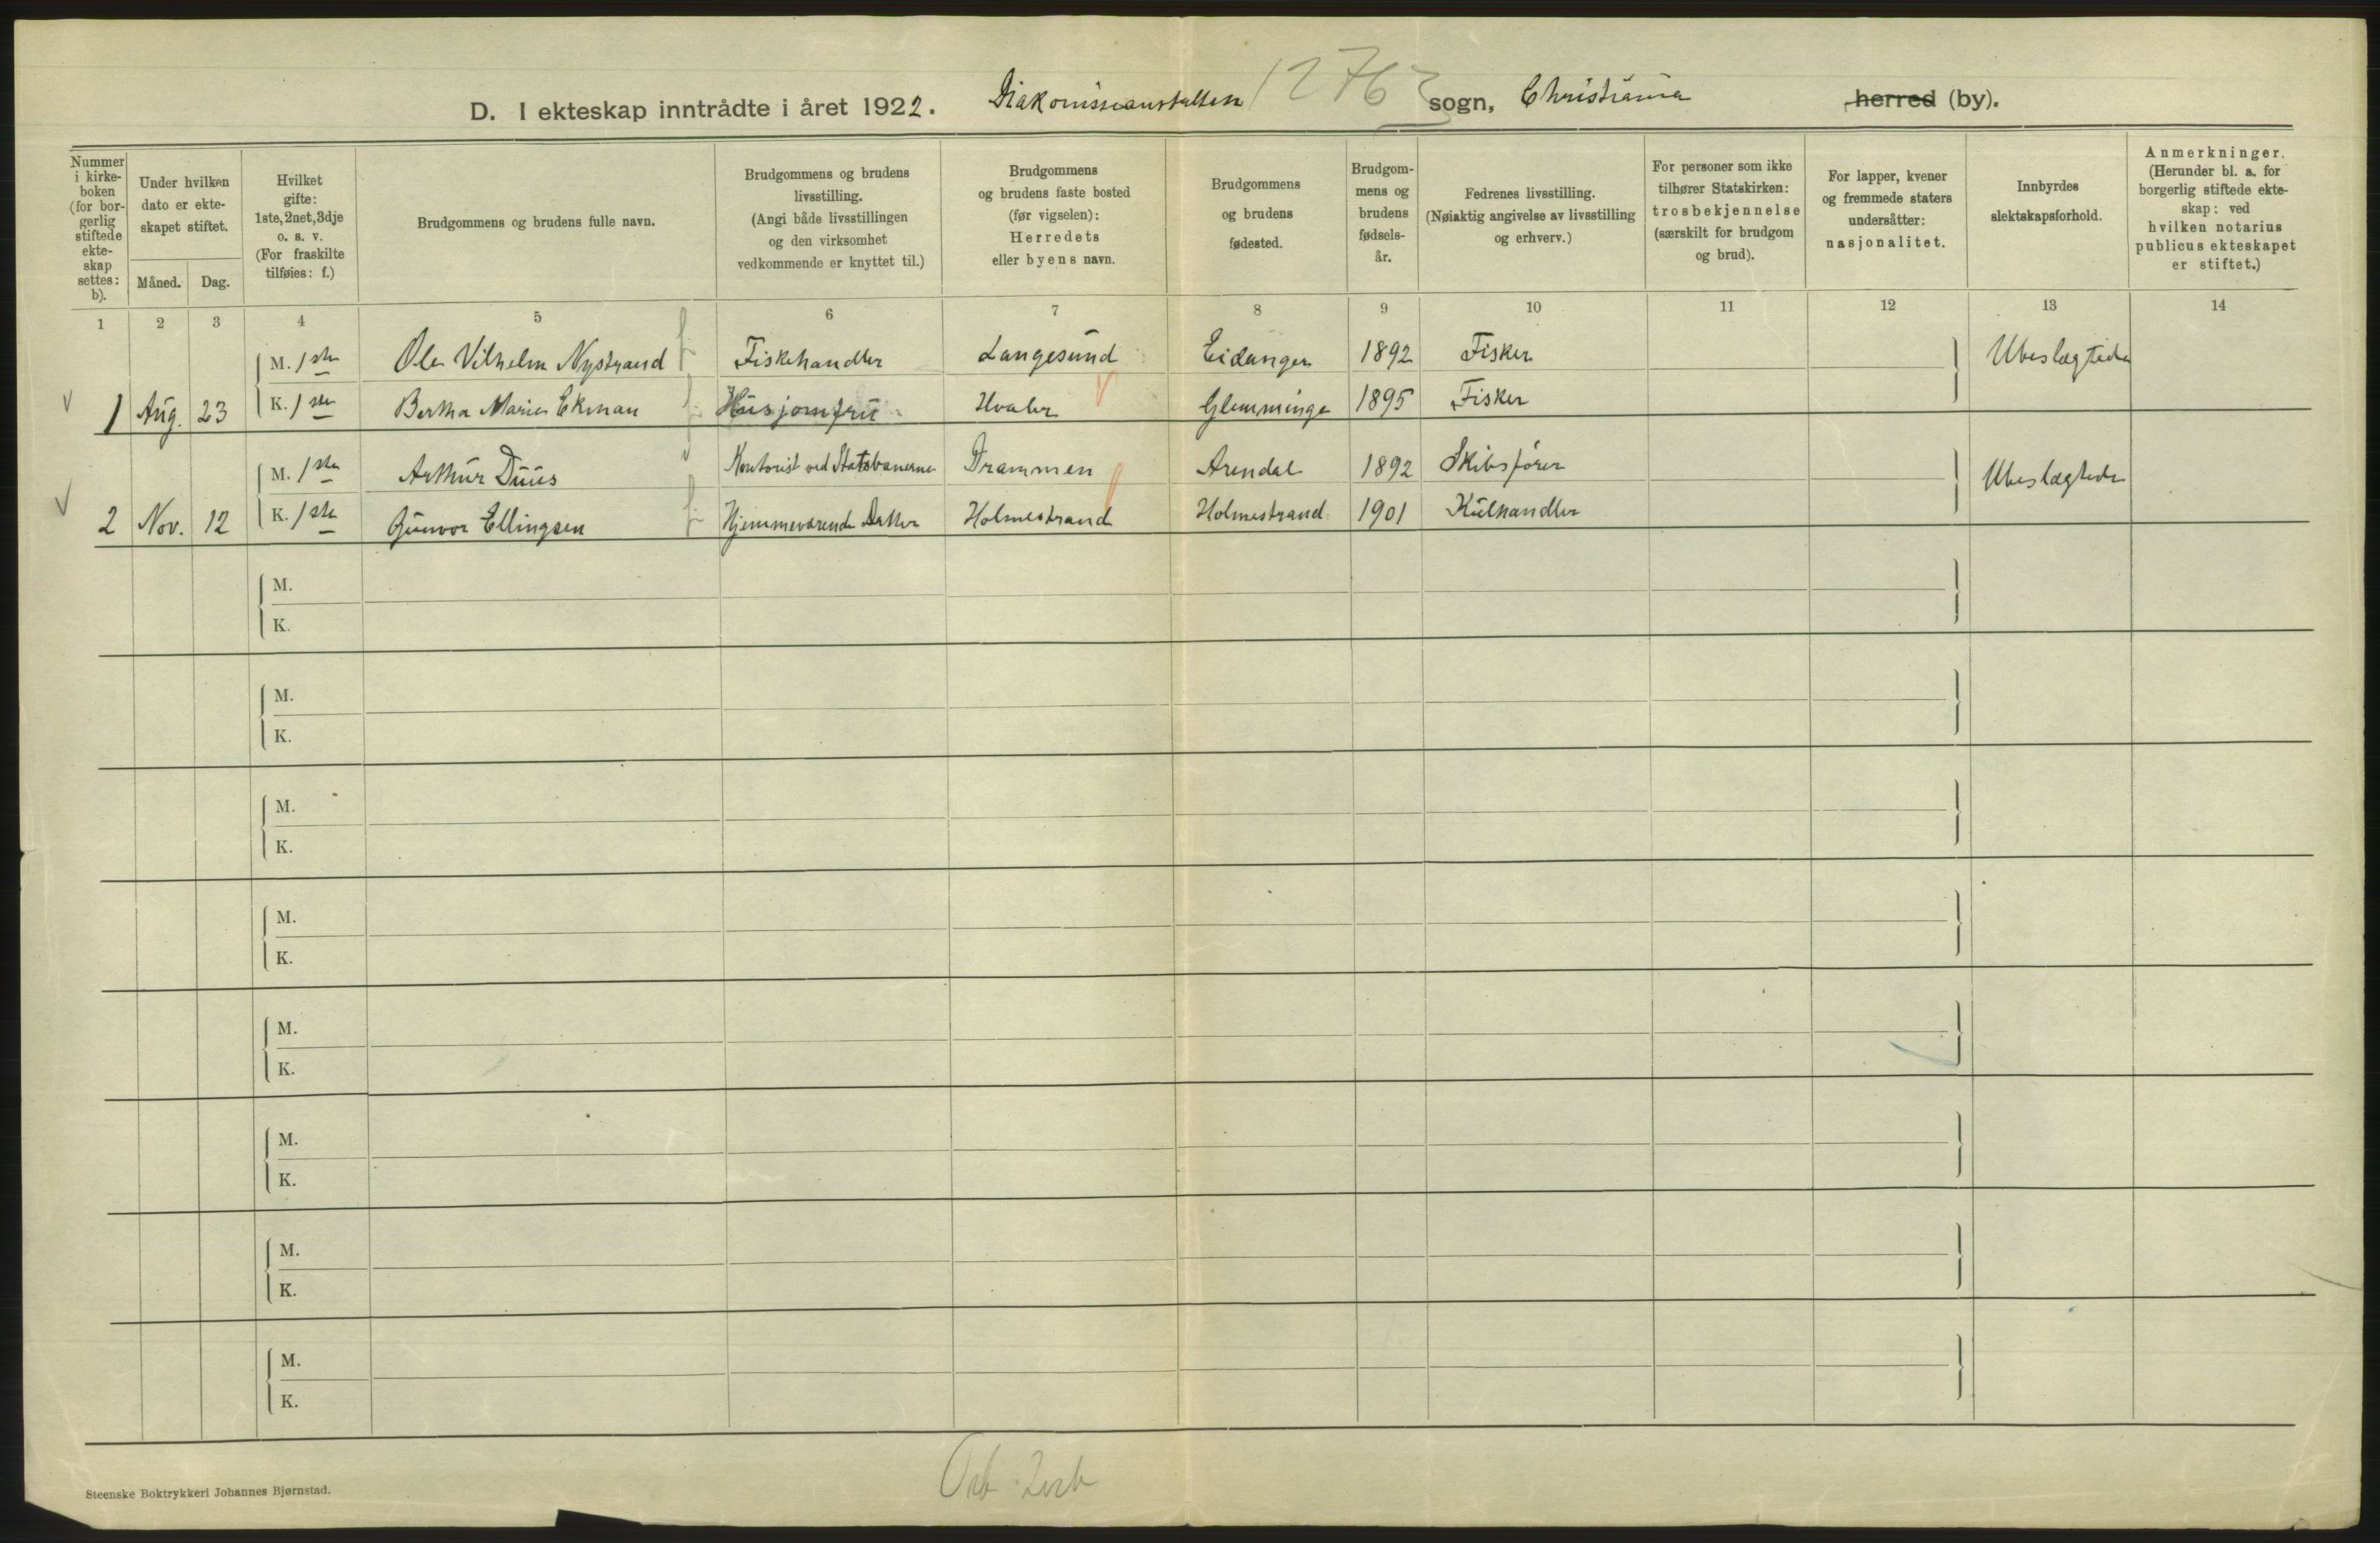 D. I ekteskap inntrådte i året 1922. Diakonisseanstalten 1276 sogn, Christiania herred (by).
Nummer i kirke-boken (for bor-gerlig stiftede ekte-skap settes: b).
Under hvilken dato er ekte-skapet stiftet.
Måned. Dag.
Hvilket gifte: 1ste, 2net, 3dje o. s. v. (For fraskilte tilføies: f.)
Brudgommens og brudens fulle navn.
Brudgommens og brudens livsstilling. (Angi både livsstillingen og den virksomhet vedkommende er knyttet til.)
Brudgommens og brudens faste bosted (før vigselen): Herredets eller byens navn.
Brudgommens og brudens fødested.
Brudgom-mens og brudens fødsels-år.
Fedrenes livsstilling. (Nøiaktig angivelse av livsstilling og erhverv.)
For personer som ikke tilhører Statskirken: trosbekjennelse (særskilt for brudgom og brud).
For lapper, kvener og fremmede staters undersåtter: nasjonalitet.
Innbyrdes slektskapsforhold.
Anmerkninger. (Herunder bl. a. for borgerlig stiftede ekte-skap: ved hvilken notarius publicus ekteskapet er stiftet.)
1 2 3 4 5 6 7 8 9 10 11 12 13 14
M. 1ste Ole Vilhelm Nystrand Fiskehandler Langesund Eidanger 1892 Fisker Ubeslægtede
1 Aug. 23 K. 1ste Bertha Marie Ekman Husjomfru Hvaler Glemminge 1895 Fisker
M. 1ste Arthur Duus Kontorist ved Statsbanerne Drammen Arendal 1892 Skibsfører Ubeslægtede
2 Nov. 12 K. 1ste Gunvor Ellingsen Hjemmeværende Datter Holmestrand Holmestrand 1901 Kulhandler
M.
K.
M.
K.
M.
K.
M.
K.
M.
K.
M.
K.
M.
K.
M.
K.
Steenske Boktrykkeri Johannes Bjørnstad.